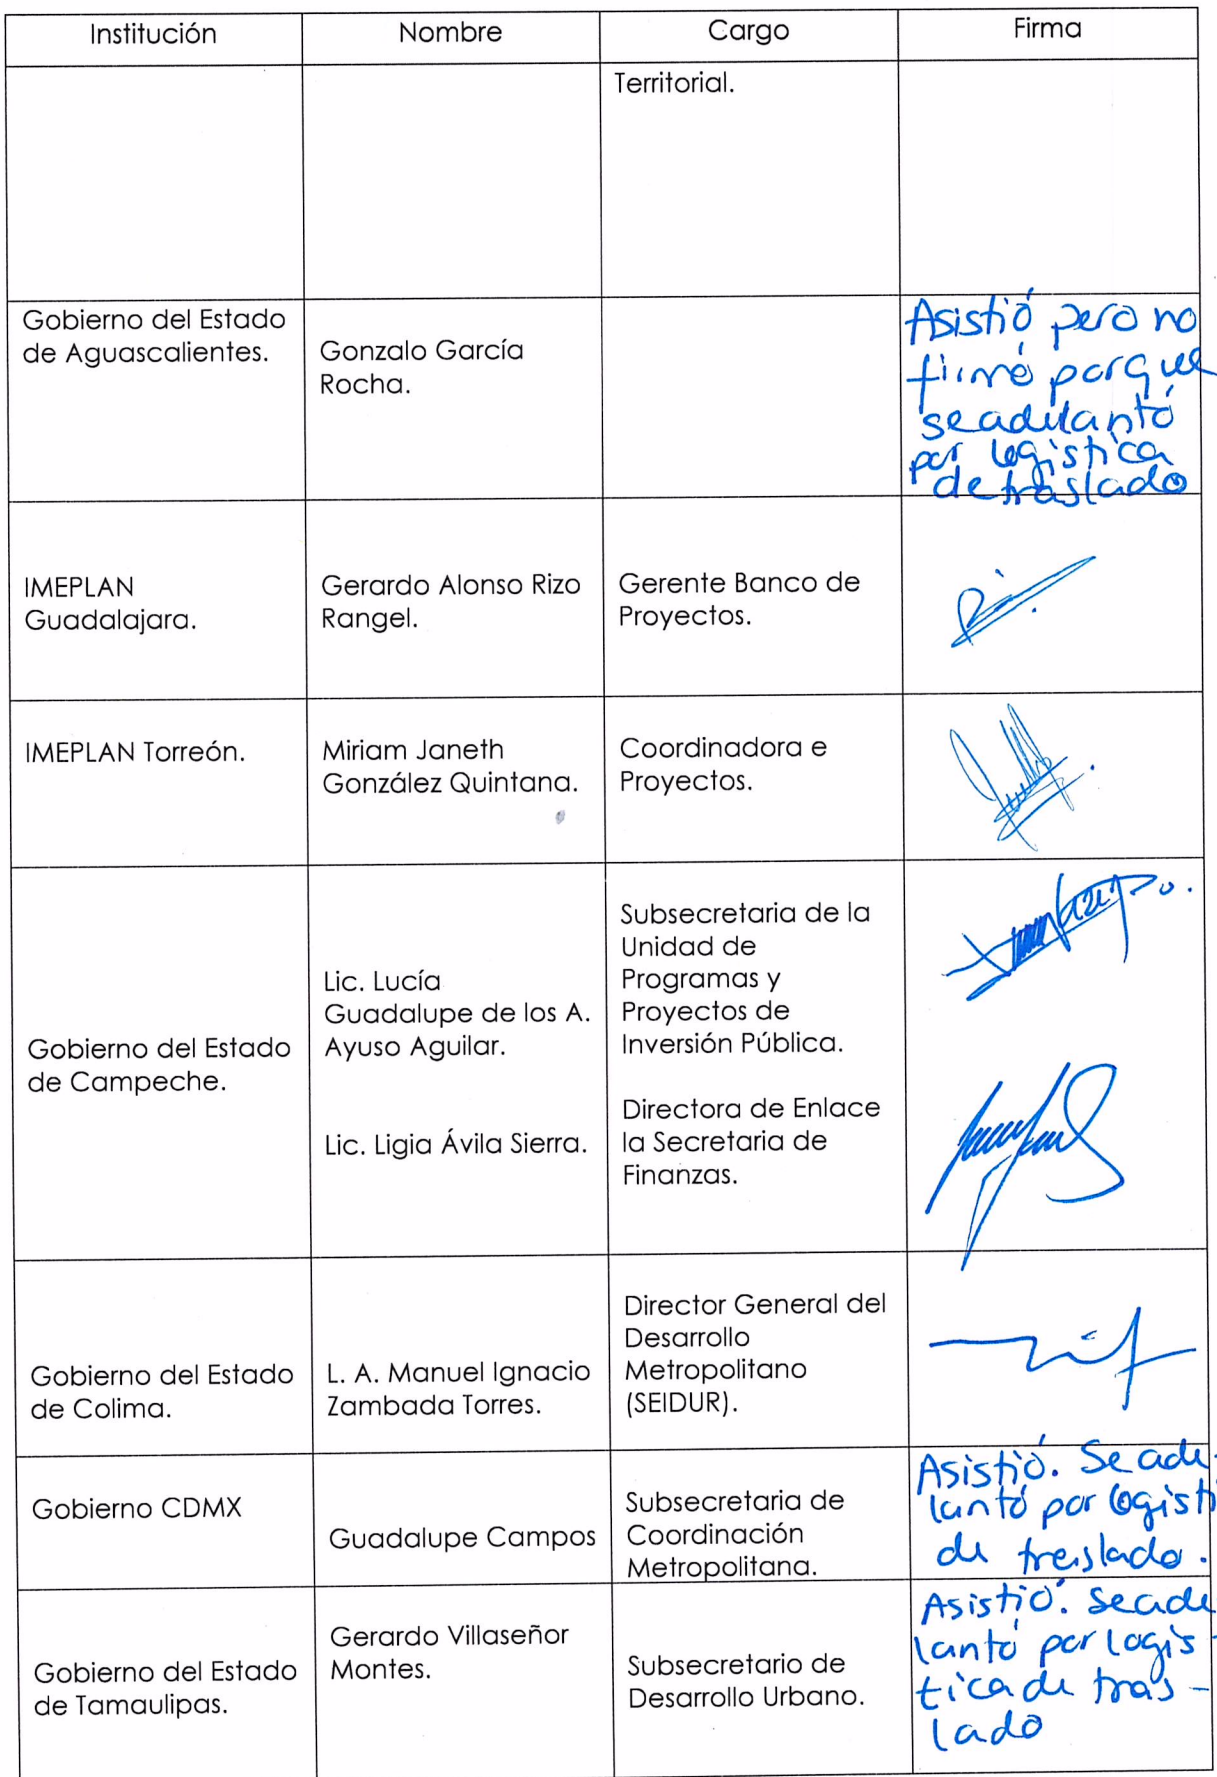 Institución
Nombre
Cargo
Firma
Territorial.
Gobierno del Estado
de Aguascalientes.
Gonzalo García
Rocha.
Asistió pero no
firmó porque
se adelantó
por logística
de traslado
IMEPLAN
Guadalajara.
Gerardo Alonso Rizo
Rangel.
Gerente Banco de
Proyectos.
IMEPLAN Torreón.
Miriam Janeth
González Quintana.
Coordinadora e
Proyectos.
Gobierno del Estado
de Campeche.
Lic. Lucía
Guadalupe de los A.
Ayuso Aguilar.
Lic. Ligia Ávila Sierra.
Subsecretaria de la
Unidad de
Programas y
Proyectos de
Inversión Pública.
Directora de Enlace
la Secretaria de
Finanzas.
Gobierno del Estado
de Colima.
L. A. Manuel Ignacio
Zambada Torres.
Director General del
Desarrollo
Metropolitano
(SEIDUR).
Gobierno CDMX
Guadalupe Campos
Subsecretaria de
Coordinación
Metropolitana.
Asistió. Se ade-
lantó por logisti
de traslado.
Gobierno del Estado
de Tamaulipas.
Gerardo Villaseñor
Montes.
Subsecretario de
Desarrollo Urbano.
Asistió. Se ade
lantó por logis-
tica de tras-
lado